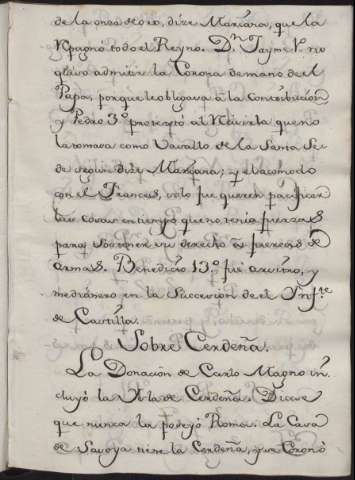 de la onza de oro, dize Mariana, que la
Npagnó todo el Reyno. D.n Jayme 1.o no
quiso admitir la Corona de mano de el
Papa, porque le obligava à la Contribución
y Pedro 3.o protextó al Recivirla que no
la tomava como Vasallo de la Santa Se
de segun dize Mariana; y el acomodo
con el Frances, solo fue querer pacificar
las cosas en tiempo que no tenia fuerzas
para sostener su derecho
armas. Benedicto 13.o fue arvitro, y
medianero en la Succesion de el Inf.te
de Castilla.
Sobre Cerdeña.
La Donación de Carlo Magno in
cluyó la Ysla de Cerdeña. Dicese
que nunca la poseyó Roma. La Casa
de Savoya tiene la Cerdeña, y se Coronó